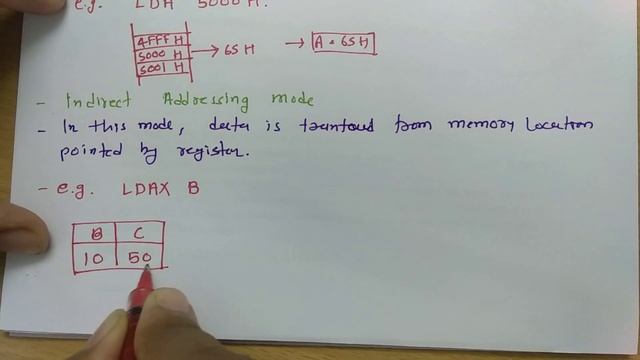 e.g. LDA 5000 H.
4FFF H
5000 H → 65 H → A = 65 H
5001 H
- Indirect Addressing mode
- In this mode, data is from memory location
pointed by register.
- e.g. LDAX B
B C
10 50